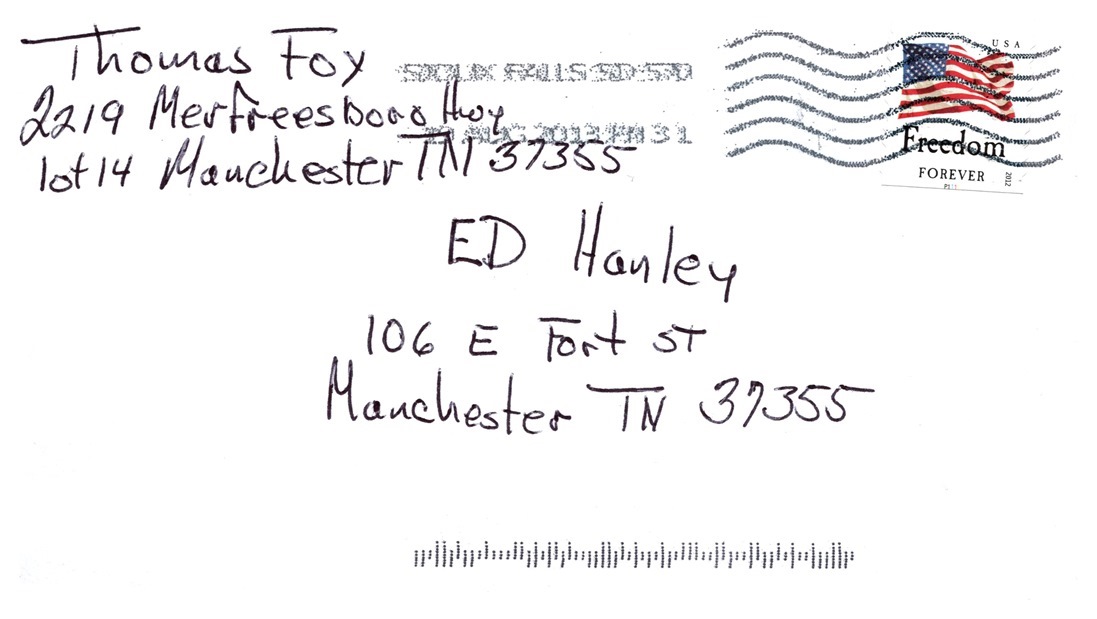 Thomas Foy
2219 Merfreesboro Hwy
lot 14 Manchester TN 37355
SIOUX FALLS SD 570
AUG 2012 PM 3 1
USA
Freedom
FOREVER
2012
ED Hanley
106 E Fort ST
Manchester TN 37355